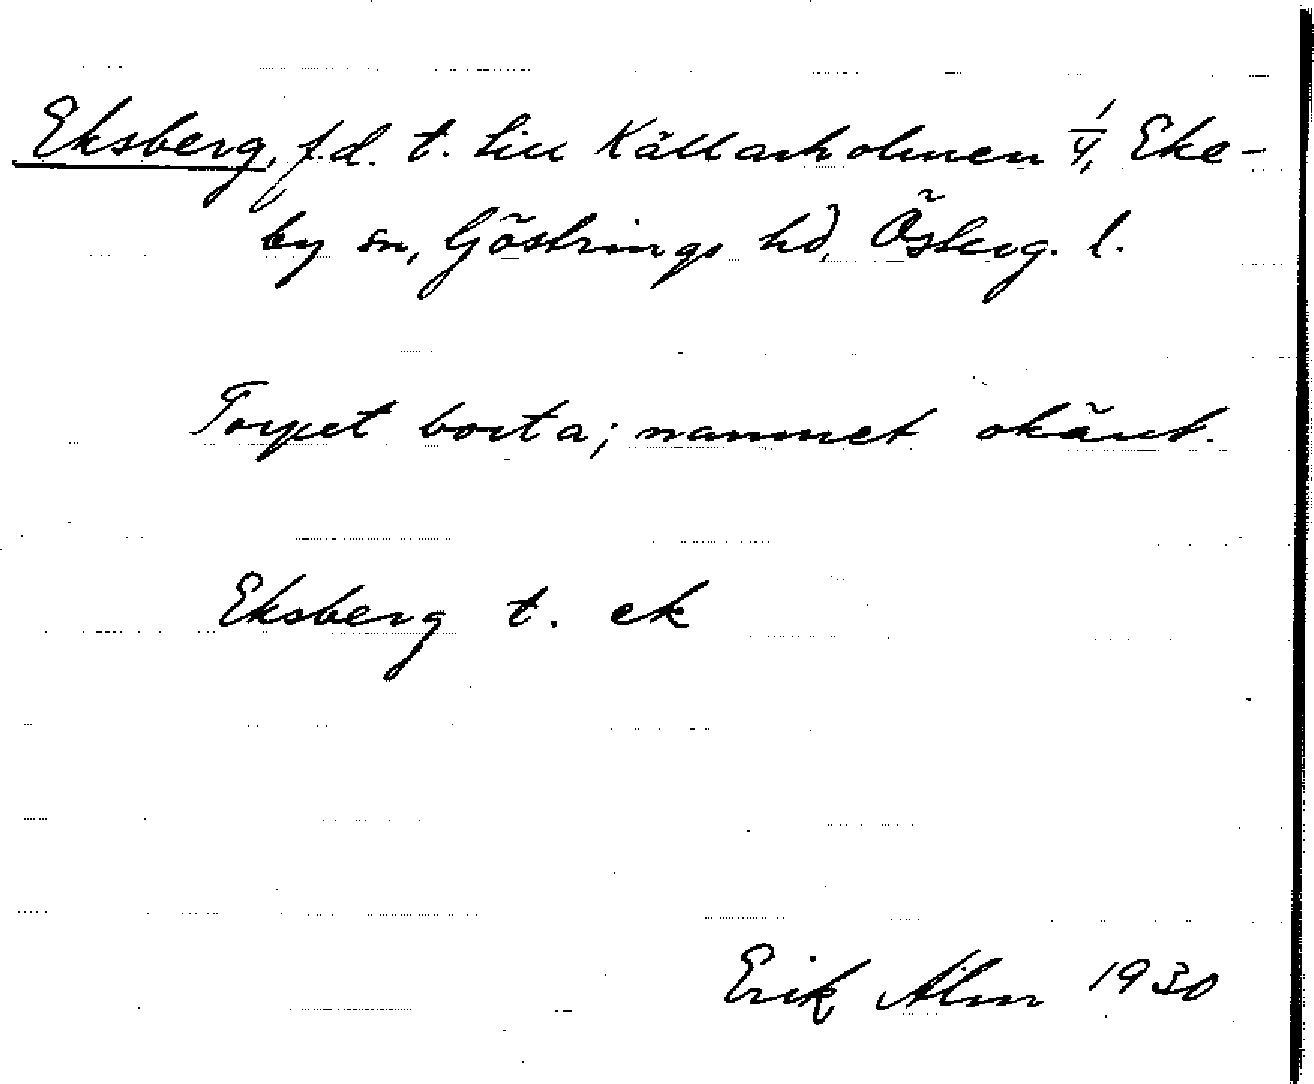 Eksberg, f.d. t. till Källarholmen 1/4, Eke-
by sn, Göstrings hd, Österg. l.
Torpet borta; namnet okänt.
Eksberg t. ek
Erik Alm 1930